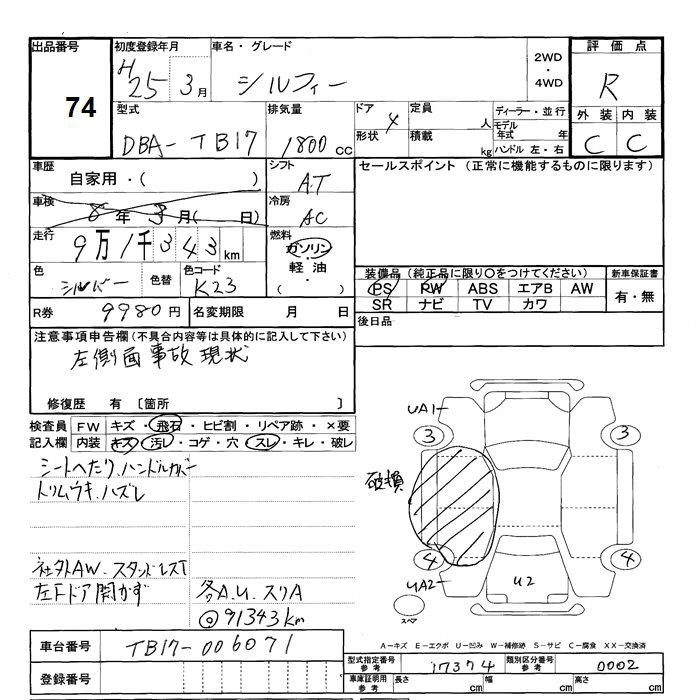 出品番号 初度登録年月 車名・グレード 2WD・4WD 評価点
74 H25 3月 シルフィー R
型式 排気量 ドア形状 4 定員 人 ディーラー・並行 外装 内装
DBA-TB17 1800cc 積載 kg モデル年式 年 C C
ハンドル 左・右
車歴 シフト セールスポイント (正常に機能するものに限ります)
自家用・( ) AT
車検 冷房
8年3月( 日) AC
走行 燃料
9万1千343km ガソリン 軽油 ( )
色 色替 色コード 装備品(純正品に限り○をつけてください) 新車保証書
シルバー K23 PS PW ABS エアB AW 有・無
SR ナビ TV カワ
R券 9980円 名変期限 月 日 後日品
注意事項申告欄(不具合内容等は具体的に記入して下さい)
左側面事故現状
修復歴 有 [箇所 ]
検査員 FW キズ・飛石・ヒビ割・リペア跡・×要
記入欄 内装 キズ・汚レ・コゲ・穴・スレ・キレ・破レ
UA1
3 3
シートへたり、ハンドルカバー
トリムウキ、ハズレ
破損
4 4
社外AW、スタッドレスT
左Fドア開かず 各A.U.スリA
UA2 U2
◎91343km
スペア
A-キズ E-エクボ U-凹み W-補修跡 S-サビ C-腐食 XX-交換済
車台番号 TB17-006071
型式指定番号 参考 17374 類別区分番号 参考 0002
登録番号 車庫証明用 参考 長さ cm 幅 cm 高さ cm